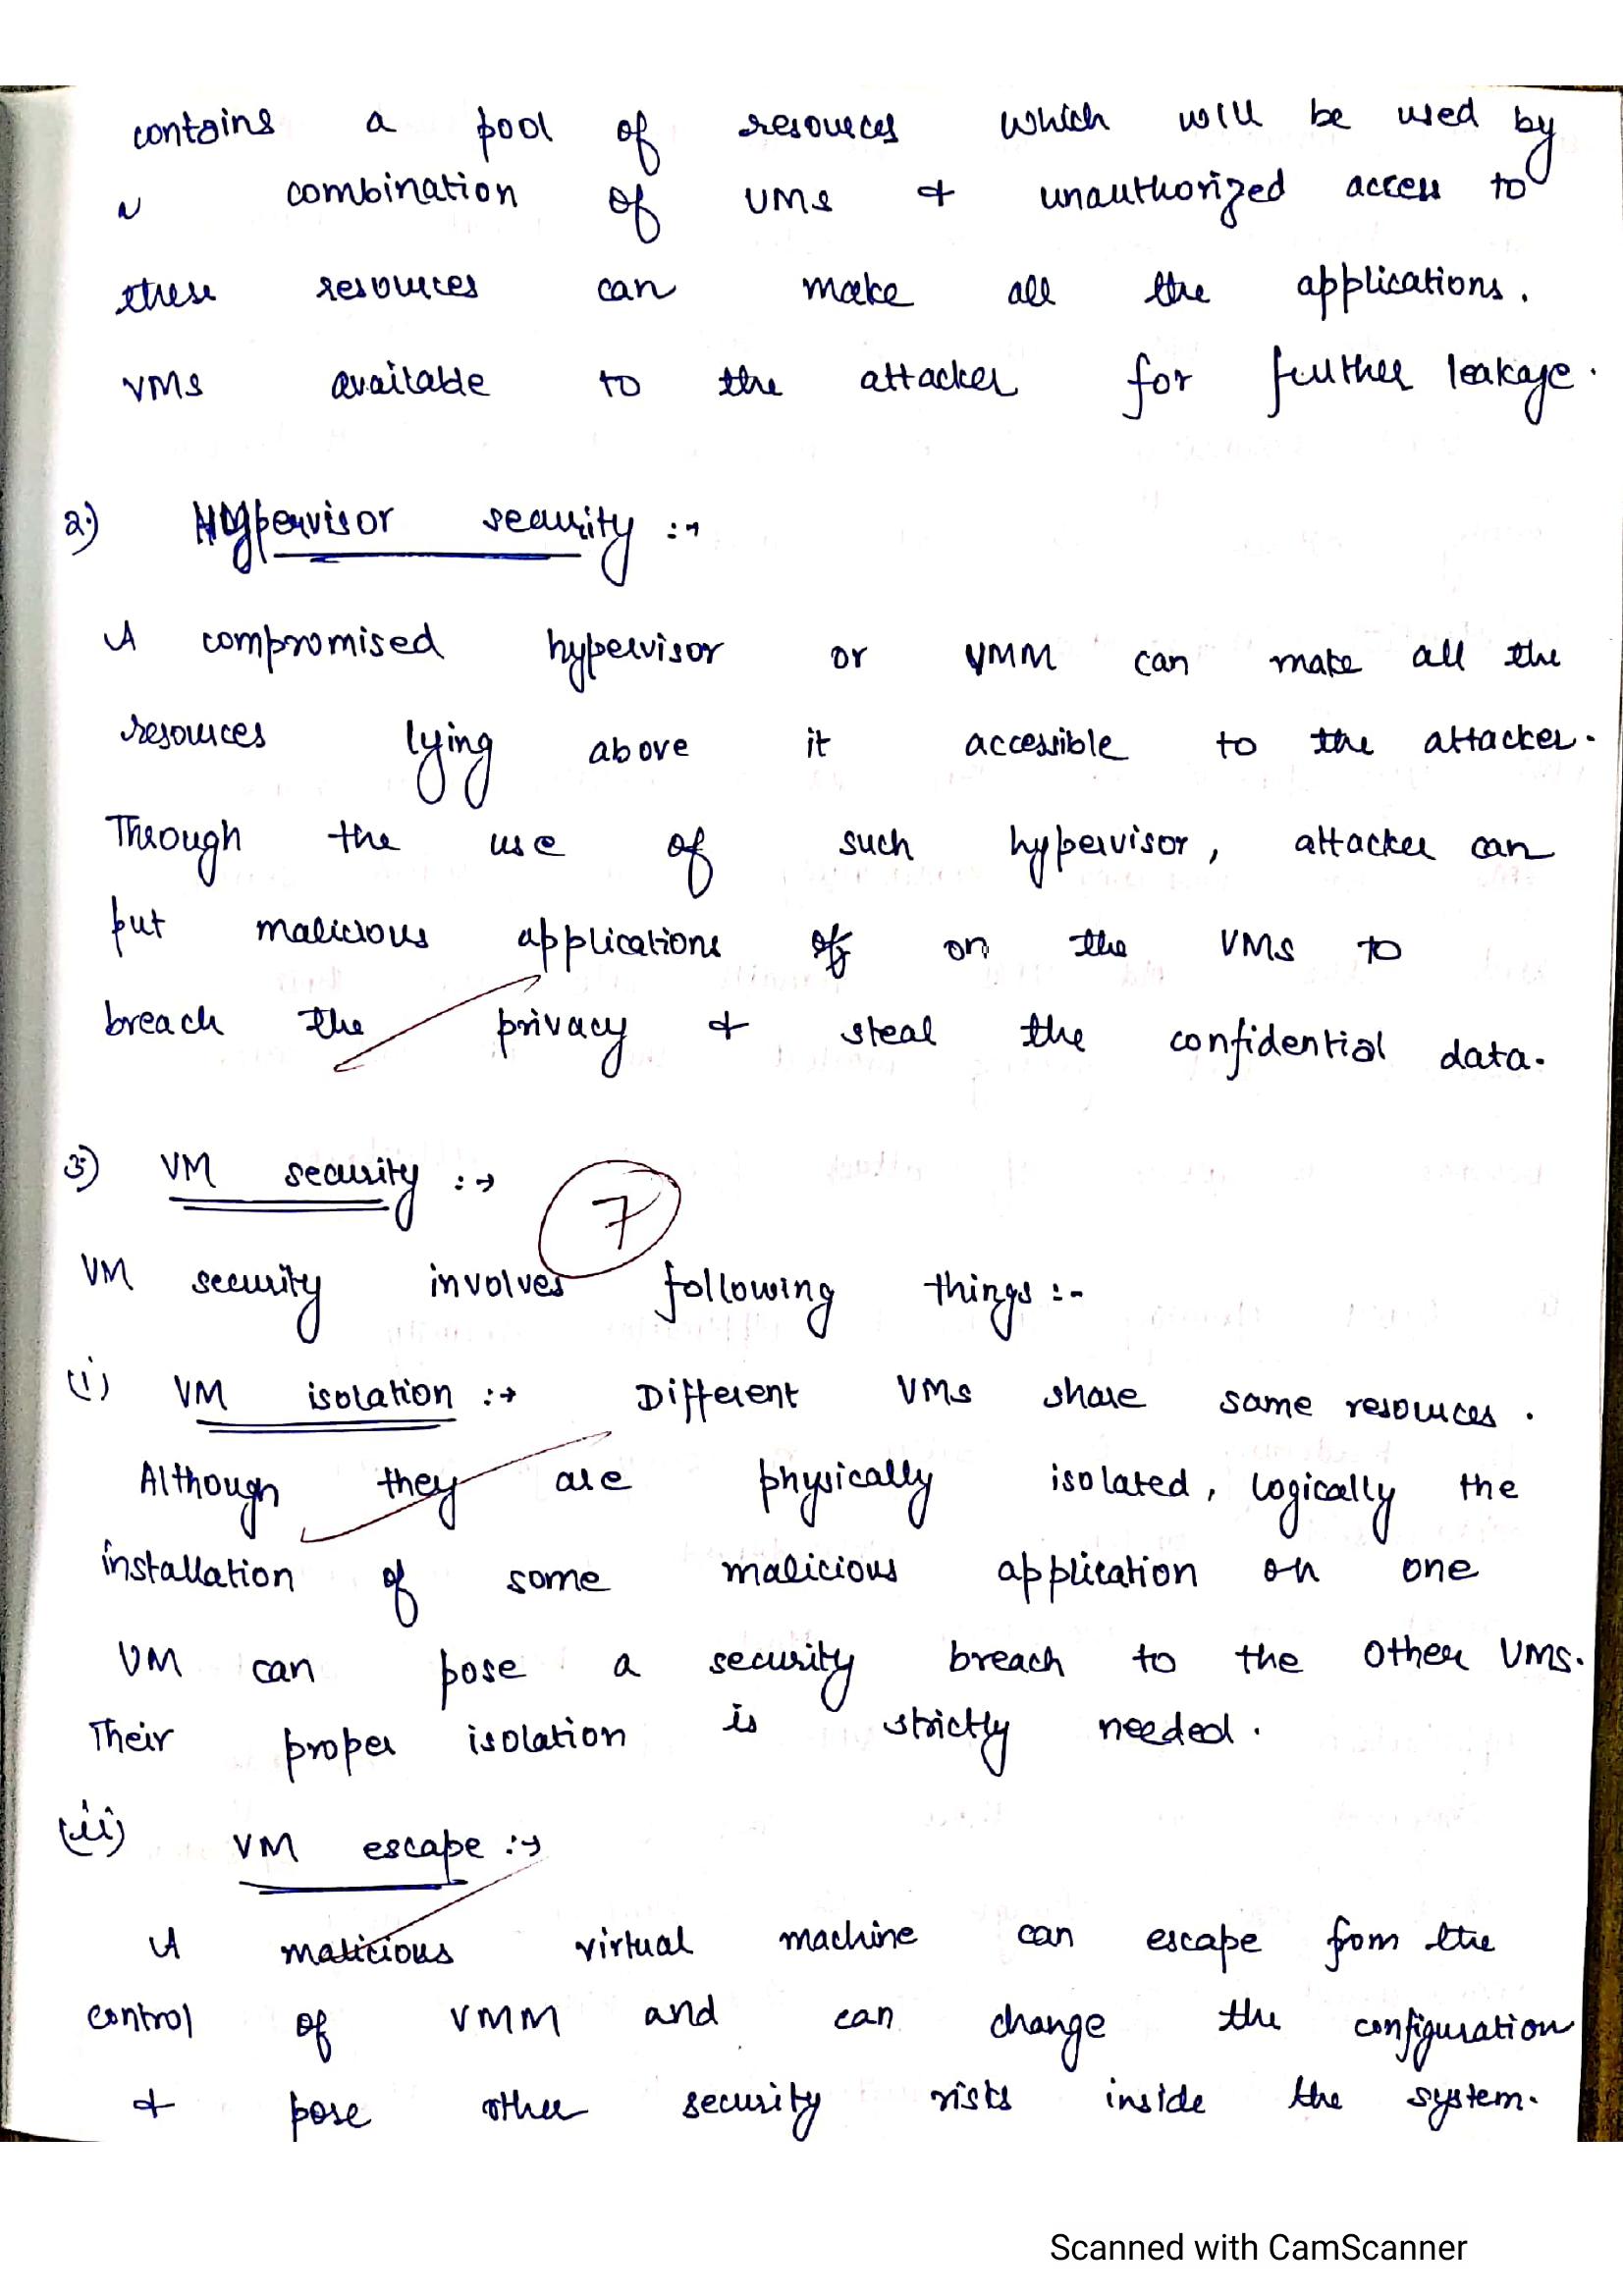 contains a pool of resources which will be used by
combination of VMs & unauthorized access to
these resources can make all the applications.
VMs available to the attacker for further leakage.
2.) Hypervisor security :→
A compromised hypervisor or VMM can make all the
resources lying above it accessible to the attacker.
Through the use of such hypervisor, attacker can
put malicious applications on the VMs to
breach the privacy & steal the confidential data.
3) VM security :→
7
VM security involves following things :-
(i) VM isolation :→ Different VMs share same resources.
Although they are physically isolated, logically the
installation of some malicious application on one
VM can pose a security breach to the other VMs.
Their proper isolation is strictly needed.
(ii) VM escape :→
A malicious virtual machine can escape from the
control of VMM and can change the configuration
& pose other security risks inside the system.
Scanned with CamScanner